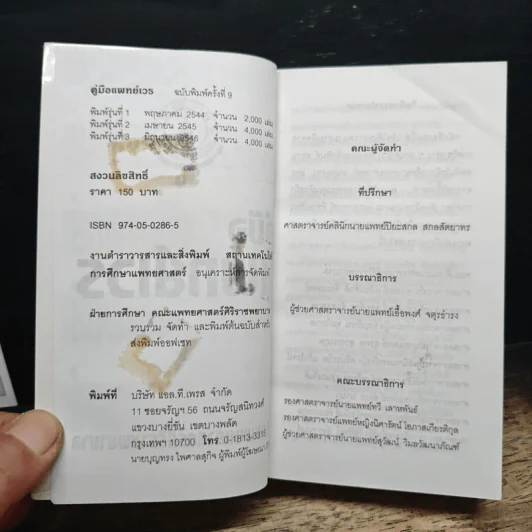 คู่มือแพทย์เวร ฉบับพิมพ์ครั้งที่ 9
พิมพ์รุ่นที่ 1 พฤษภาคม 2544 จำนวน 2,000 เล่ม
พิมพ์รุ่นที่ 2 เมษายน 2545 จำนวน 4,000 เล่ม
พิมพ์รุ่นที่ 3 มิถุนายน 2546 จำนวน 4,000 เล่ม
สงวนลิขสิทธิ์
ราคา 150 บาท
ISBN 974-05-0286-5
งานตำราวารสารและสิ่งพิมพ์ สถานเทคโนโลยี
การศึกษาแพทยศาสตร์ อนุเคราะห์การจัดพิมพ์
ฝ่ายการศึกษา คณะแพทยศาสตร์ศิริราชพยาบาล
รวบรวม จัดทำ และพิมพ์ต้นฉบับสำหรับ
ส่งพิมพ์ออฟเซท
พิมพ์ที่ บริษัท แอล.ที.เพรส จำกัด
11 ซอยจรัญฯ 56 ถนนจรัญสนิทวงศ์
แขวงบางยี่ขัน เขตบางพลัด
กรุงเทพฯ 10700 โทร. 0-1813-3315
นายบุญทรง ไพศาลสุกิจ ผู้พิมพ์ผู้โฆษณา
คณะผู้จัดทำ
ที่ปรึกษา
ศาสตราจารย์คลินิกนายแพทย์ปิยะสกล สกลสัตยาทร
บรรณาธิการ
ผู้ช่วยศาสตราจารย์นายแพทย์เอื้อพงศ์ จตุรธำรง
คณะบรรณาธิการ
รองศาสตราจารย์นายแพทย์ทวี เลาหพันธ์
รองศาสตราจารย์แพทย์หญิงนิศารัตน์ โอภาสเกียรติกุล
ผู้ช่วยศาสตราจารย์นายแพทย์สุวัฒน์ วิมลวัฒนาภัณฑ์